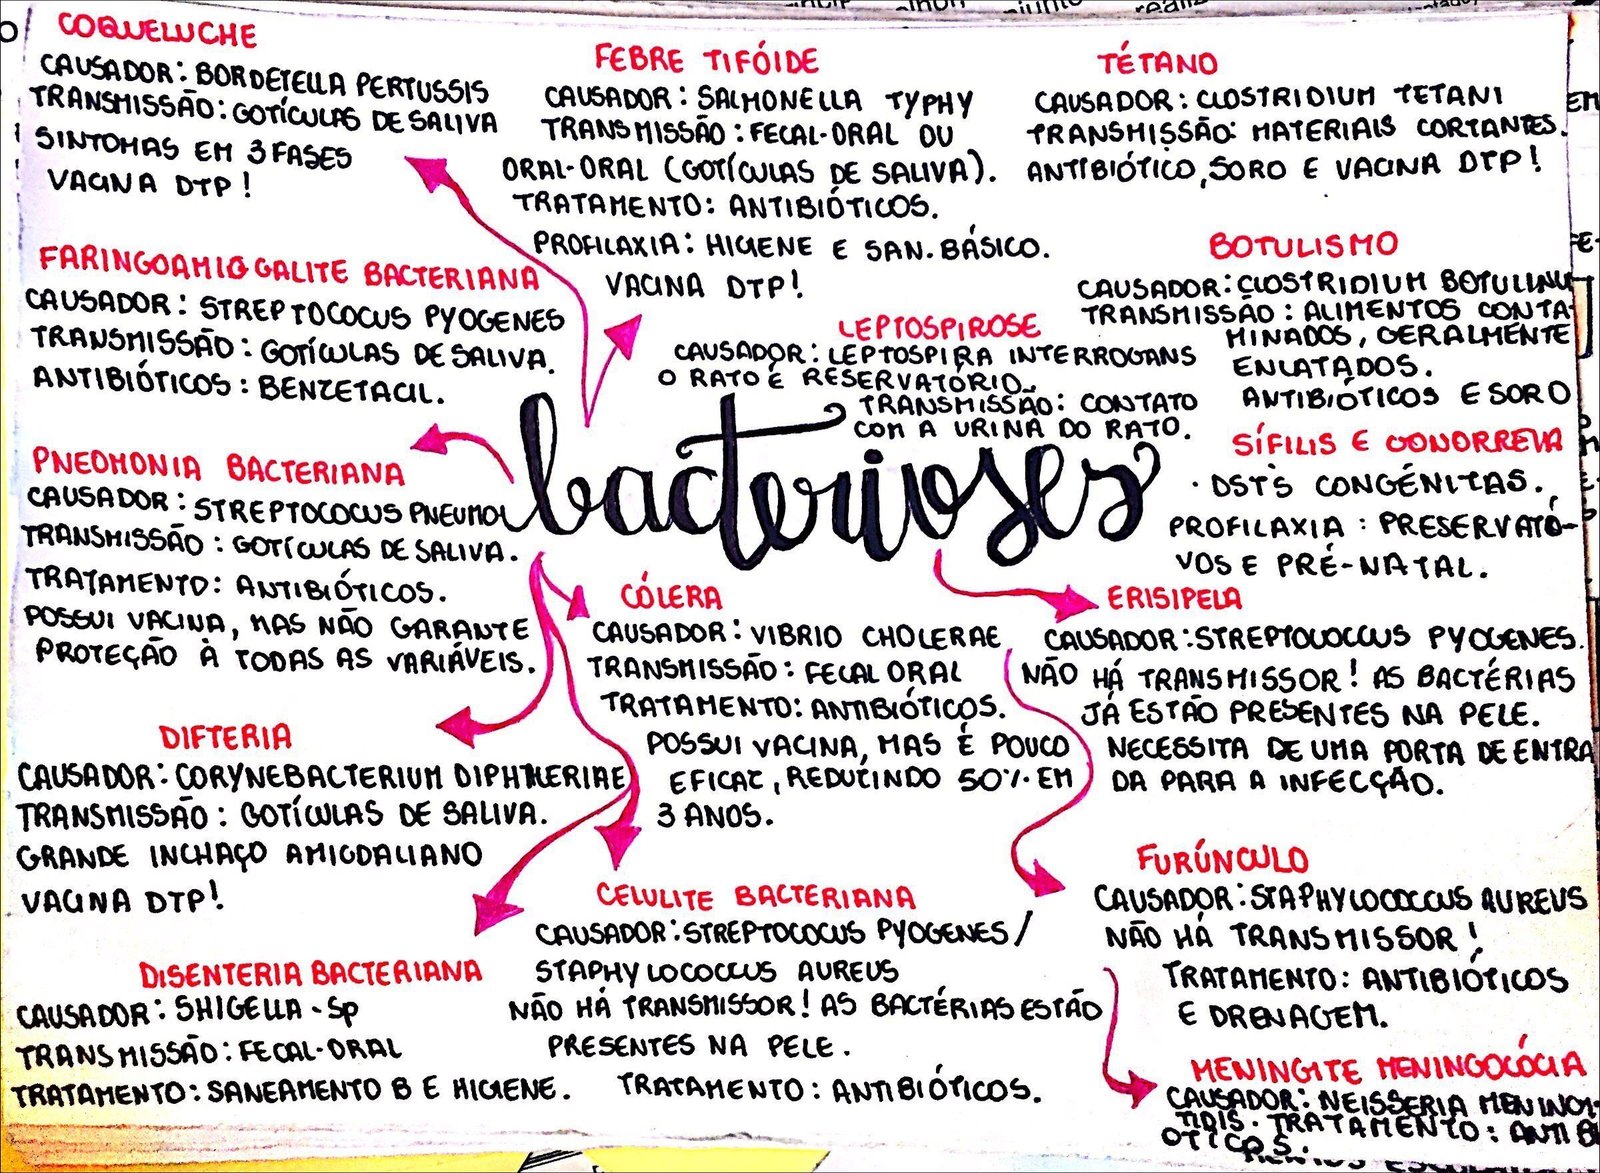 COQUELUCHE
CAUSADOR: BORDETELLA PERTUSSIS
TRANSMISSÃO: GOTÍCULAS DE SALIVA
SINTOMAS EM 3 FASES
VACINA DTP!
FEBRE TIFÓIDE
CAUSADOR: SALMONELLA TYPHY
TRANSMISSÃO: FECAL-ORAL OU
ORAL-ORAL (GOTÍCULAS DE SALIVA).
TRATAMENTO: ANTIBIÓTICOS.
PROFILAXIA: HIGIENE E SAN. BÁSICO.
VACINA DTP!
TÉTANO
CAUSADOR: CLOSTRIDIUM TETANI
TRANSMISSÃO: MATERIAIS CORTANTES.
ANTIBIÓTICO, SORO E VACINA DTP!
FARINGOAMIGGALITE BACTERIANA
CAUSADOR: STREPTOCOCUS PYOGENES
TRANSMISSÃO: GOTÍCULAS DE SALIVA.
ANTIBIÓTICOS: BENZETACIL.
LEPTOSPIROSE
CAUSADOR: LEPTOSPIRA INTERROGANS
O RATO É RESERVATÓRIO.
TRANSMISSÃO: CONTATO
COM A URINA DO RATO.
BOTULISMO
CAUSADOR: CLOSTRIDIUM BOTULINU
TRANSMISSÃO: ALIMENTOS CONTA-
MINADOS, GERALMENTE
ENLATADOS.
ANTIBIÓTICOS E SORO
bacterioses
SÍFILIS E GONORREIA
· DSTS CONGÊNITAS.
PROFILAXIA: PRESERVATÓ-
VOS E PRÉ-NATAL.
PNEOMONIA BACTERIANA
CAUSADOR: STREPTOCOCUS PNEUMO
TRANSMISSÃO: GOTÍCULAS DE SALIVA.
TRATAMENTO: ANTIBIÓTICOS.
POSSUI VACINA, MAS NÃO GARANTE
PROTEÇÃO À TODAS AS VARIÁVEIS.
CÓLERA
CAUSADOR: VIBRIO CHOLERAE
TRANSMISSÃO: FECAL ORAL
TRATAMENTO: ANTIBIÓTICOS.
POSSUI VACINA, MAS É POUCO
EFICAZ, REDUZINDO 50% EM
3 ANOS.
ERISIPELA
CAUSADOR: STREPTOCOCCUS PYOGENES.
NÃO HÁ TRANSMISSOR! AS BACTÉRIAS
JÁ ESTÃO PRESENTES NA PELE.
NECESSITA DE UMA PORTA DE ENTRA
DA PARA A INFECÇÃO.
DIFTERIA
CAUSADOR: CORYNEBACTERIUM DIPHTHERIAE
TRANSMISSÃO: GOTÍCULAS DE SALIVA.
GRANDE INCHAÇO AMIGDALIANO
VACINA DTP!
CELULITE BACTERIANA
CAUSADOR: STREPTOCOCUS PYOGENES/
STAPHYLOCOCCUS AUREUS
NÃO HÁ TRANSMISSOR! AS BACTÉRIAS ESTÃO
PRESENTES NA PELE.
TRATAMENTO: ANTIBIÓTICOS.
FURÚNCULO
CAUSADOR: STAPHYLOCOCCUS AUREUS
NÃO HÁ TRANSMISSOR!
TRATAMENTO: ANTIBIÓTICOS
E DRENAGEM.
DISENTERIA BACTERIANA
CAUSADOR: SHIGELLA-SP
TRANSMISSÃO: FECAL-ORAL
TRATAMENTO: SANEAMENTO B E HIGIENE.
MENINGITE MENINGOCÓCIA
CAUSADOR: NEISSERIA MENINGI-
TIDIS. TRATAMENTO: ANTIBI
ÓTICOS.